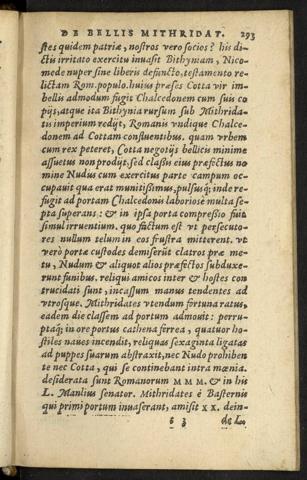 DE BELLIS MITHRIDAT. 293
stes quidem patriæ, nostros vero socios? his di-
ctis irritato exercitu inuasit Bithyniam, Nico-
mede nuper sine liberis defuncto, testamento re-
lictam Rom. populo. huius præses Cotta vir im-
bellis admodum fugit Chalcedonem cum suis co
pijs, atque ita Bithynia rursum sub Mithrida-
tis imperium redijt, Romanis vndique Chalce-
donem ad Cottam confluentibus. quam vrbem
cum rex peteret, Cotta negotijs bellicis minime
assuetus non prodijt, sed classis eius præfectus no
mine Nudus cum exercitus parte campum oc-
cupauit qua erat munitissimus, pulsusq; inde re-
fugit ad portam Chalcedonis laboriose multa se-
pta superans: & in ipsa porta compressio fuit
simul irruentium. quo factum est vt persecuto-
res nullum telum in eos frustra mitterent. vt
verò portæ custodes demiserūt clatros præ me-
tu, Nudum & aliquot alios præfectos subduxe-
runt funibus. reliqui amicos inter & hostes con
trucidati sunt, incassum manus tendentes ad
vtrosque. Mithridates vtendum fortuna ratus,
eadem die classem ad portum admouit: perru-
ptaq; in ore portus cathena ferrea, quatuor ho-
stiles naues incendit, reliquas sexaginta ligatas
ad puppes suarum abstraxit, nec Nudo prohiben
te nec Cotta, qui se continebant intra mœnia.
desiderata sunt Romanorum M M M. & in his
L. Manlius senator. Mithridates è Basternis
qui primi portum inuaserant, amisit XX. dein-
6 3 de Lu